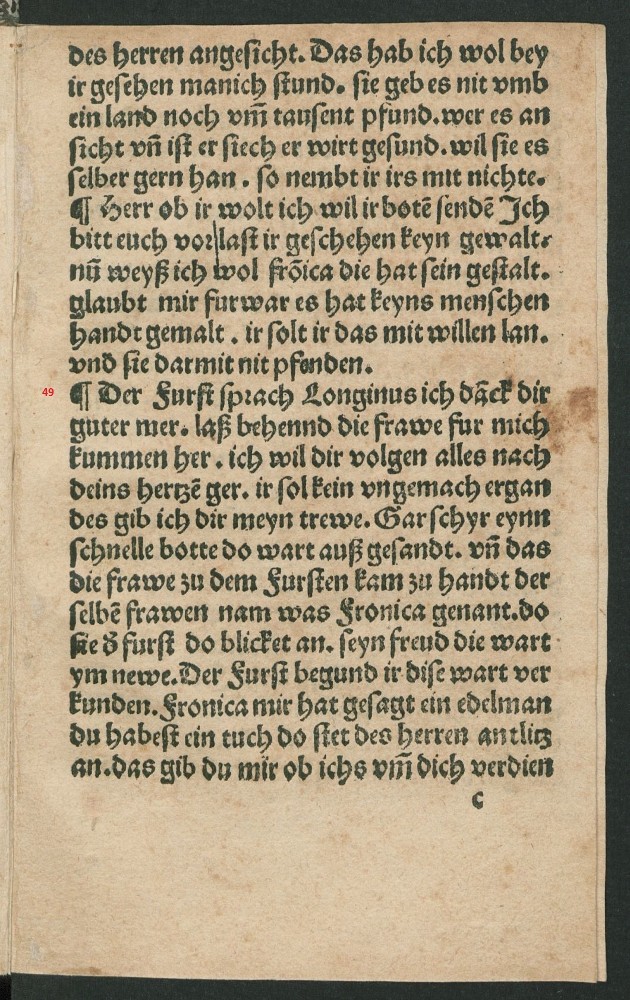 des herren angesicht. Das hab ich wol bey
ir gesehen manich stund. sie geb es nit vmb
ein land noch vm̃ tausent pfund.wer es an
sicht vñ ist er siech er wirt gesund.wil sie es
selber gern han . so nembt ir irs mit nichte.
¶ Herr ob ir wolt ich wil ir botē sendē Ich
bitt euch vor last ir geschehen keyn gewalt.
nū weyß ich wol frōica die hat sein gestalt.
glaubt mir furwar es hat keyns menschen
handt gemalt . ir solt ir das mit willen lan.
vnd sie darmit nit pfenden.
49 ¶ Der Furst sprach Longinus ich dāck dir
guter mer. laß behennd die frawe fur mich
kummen her . ich wil dir volgen alles nach
deins hertzē ger. ir sol kein vngemach ergan
des gib ich dir meyn trewe. Gar schyr eynn
schnelle botte do wart auß gesandt. vñ das
die frawe zu dem Fursten kam zu handt der
selbē frawen nam was Fronica genant.do
sie ð furst do blicket an. seyn freud die wart
ym newe.Der Furst begund ir dise wart ver
kunden.Fronica mir hat gesagt ein edelman
du habest ein tuch do stet des herren antlitz
an.das gib du mir ob ichs vm̃ dich verdien
c